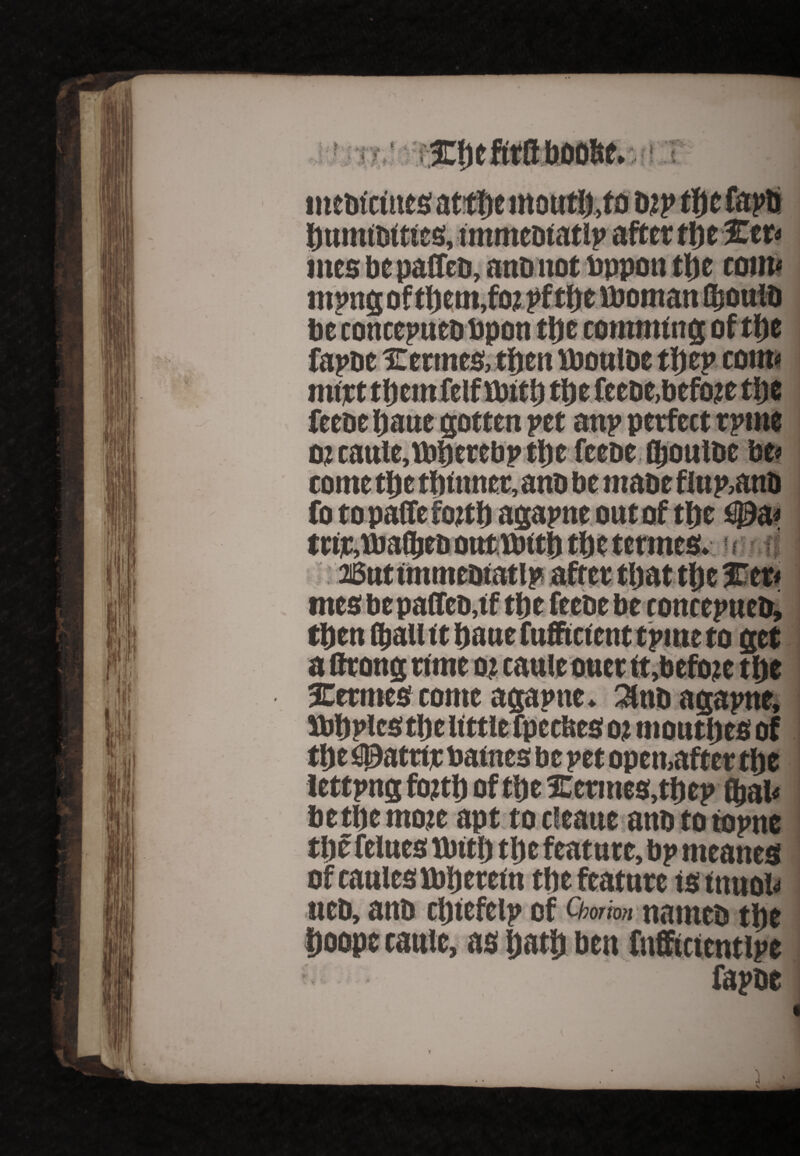 The first booke.
medicines at the mouth, to dry the sayd
humidities, immediatly after the Ter-
mes be passed, and not vppon the com-
myng of them, for yf the woman should
be concepued vpon the comming of the
sayde Termes, then woulde they com-
mixt them self with the seede, before the
seede haue gotten yet any perfect ryme
or caule, whereby the seede shoulde be-
come the thinner, and be made fluy, and
so to passe forth agayne out of the Ma-
trix, washed out with the termes.
But immediatly after that the Ter-
mes be passed, if the seede be concepued,
then shall it haue sufficient tyme to get
a strong rime or caule ouer it, before the
Termes come agayne. And agayne,
whyles the little speckes or mouthes of
the Matrix vaines be yet open, after the
lettyng forth of the Termes, they shal-
be the more apt to cleaue and to ioyne
thē selues with the feature, by meanes
of caules wherein the feature is inuol-
ued, and chiefely of Chorion named the
hoope caule, as hath ben sufficientlye
sayde